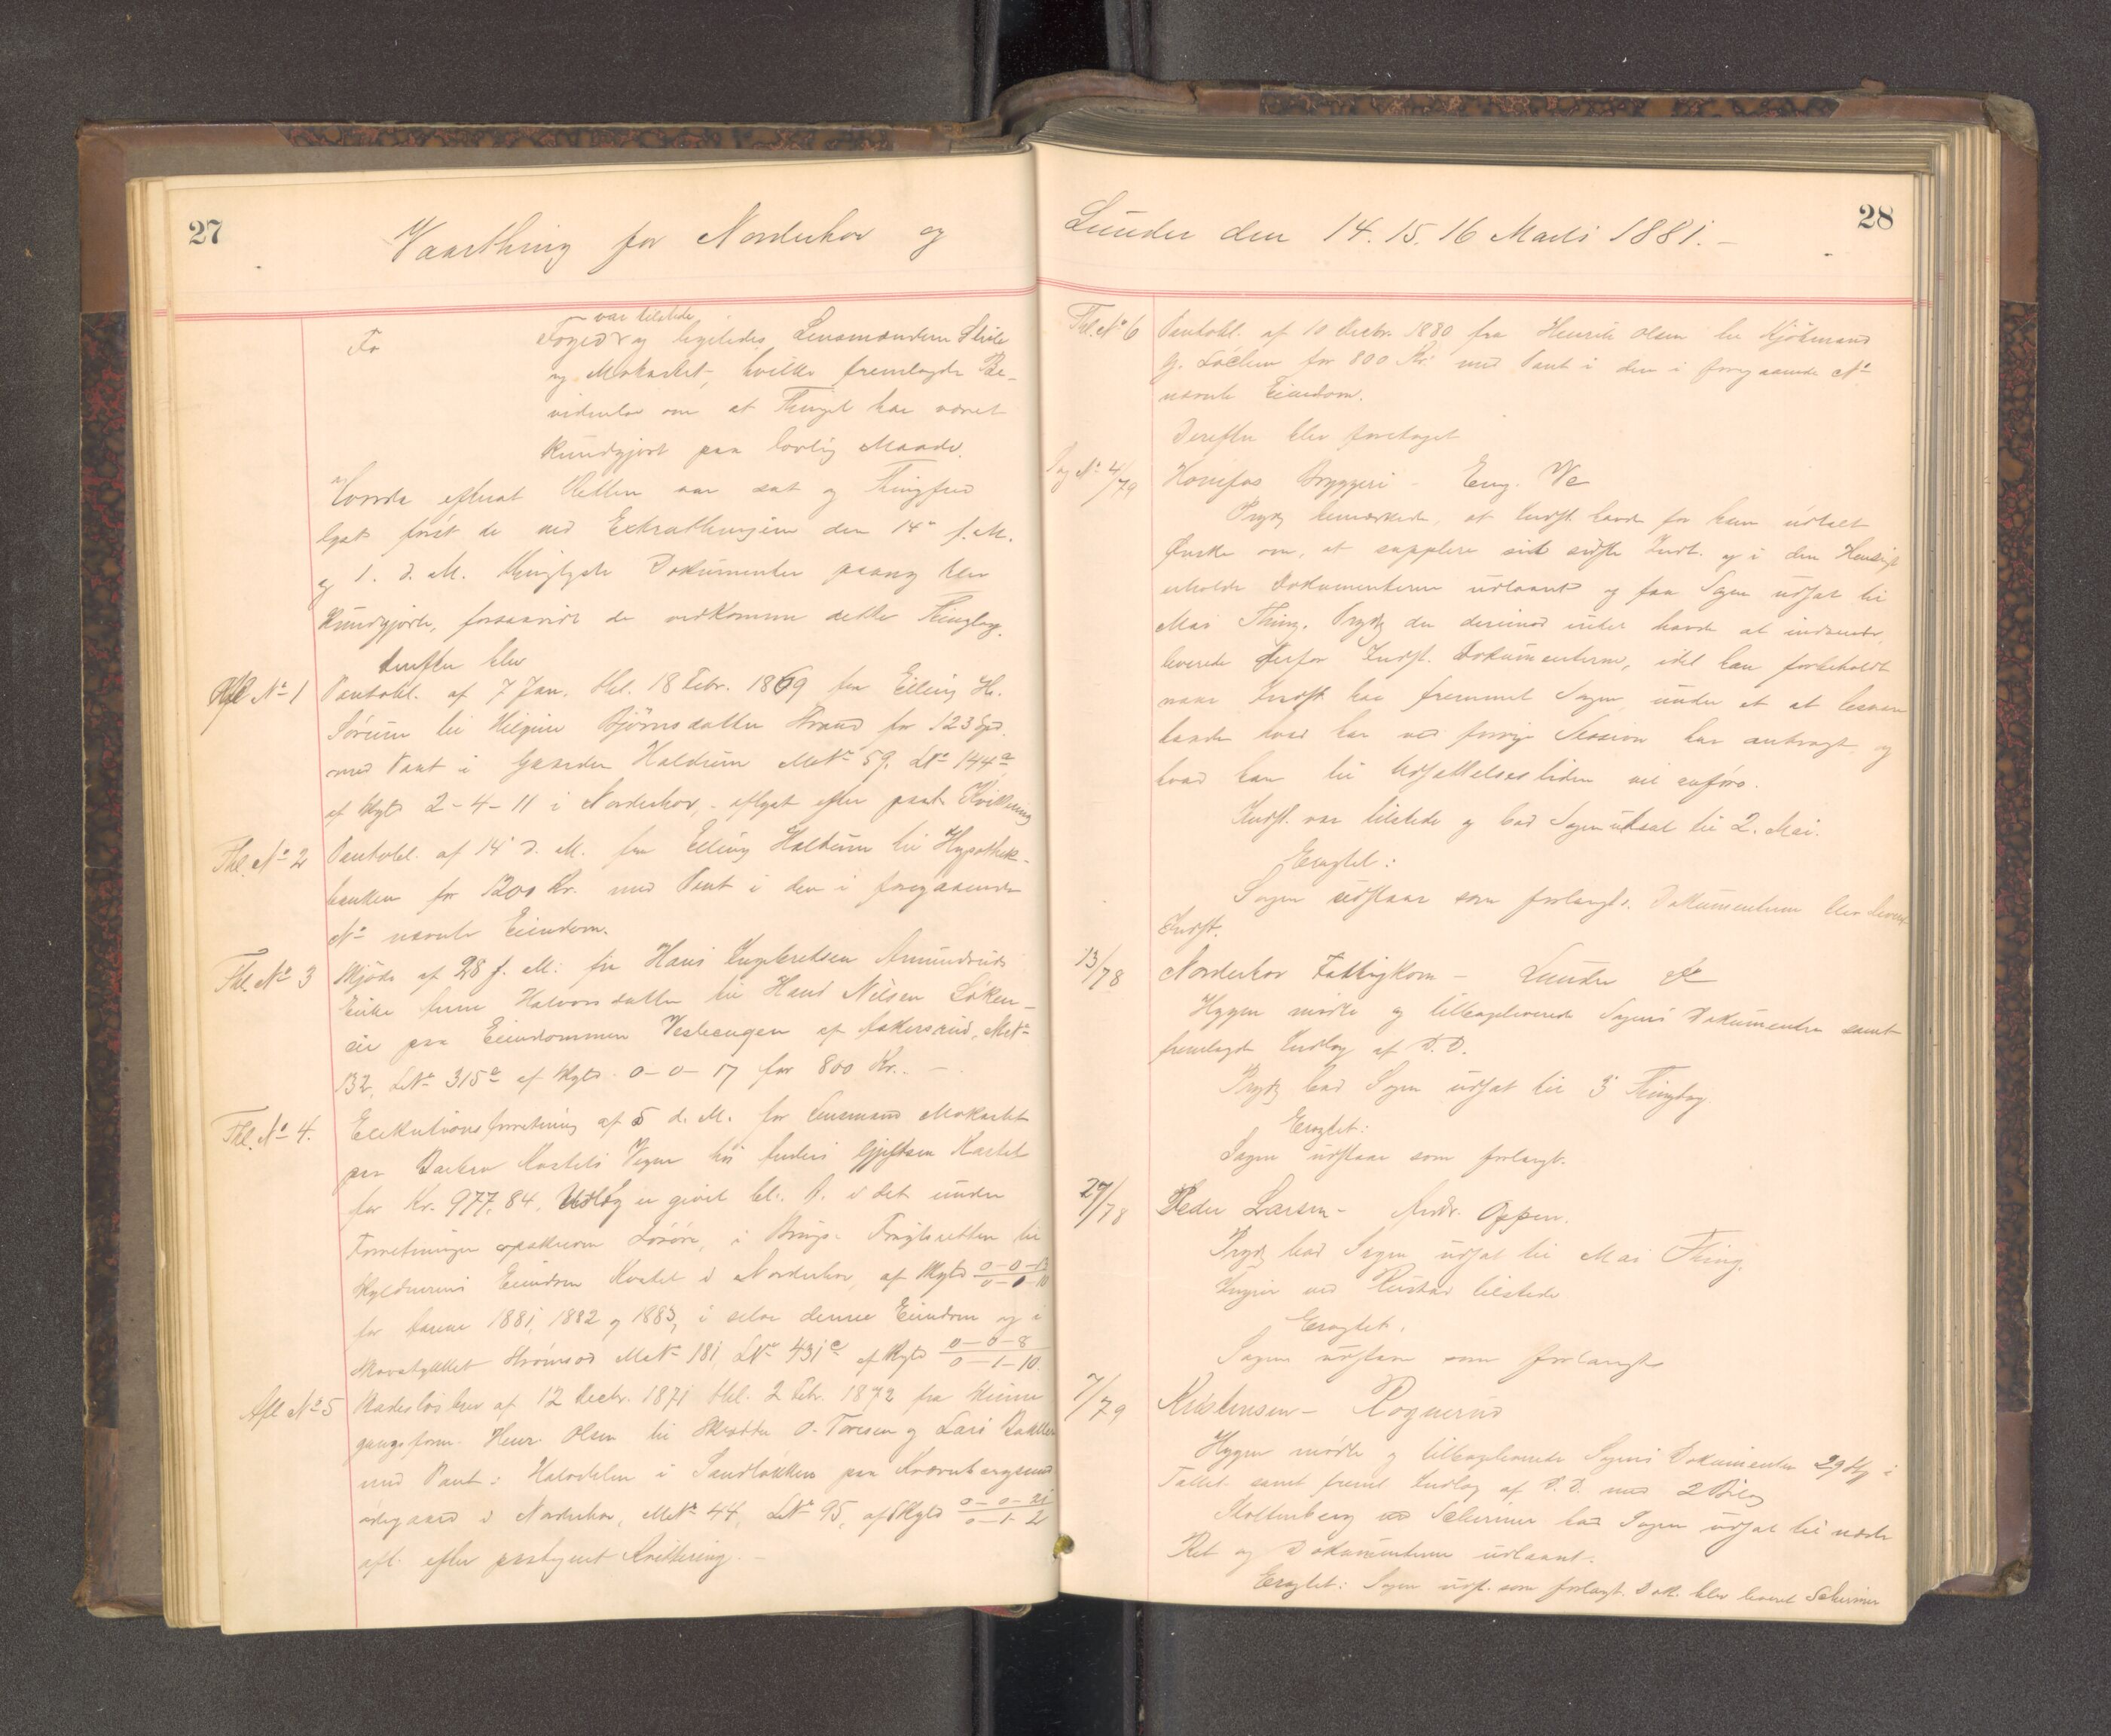 27
Vaarthing for Norderhov og
Fo
var tilstede
Foged og ligeledes Lensmændene Strøm
og Mokastet, hvilke fremlagde Be-
vidnelse om at Thinget har været
kundgjort paa lovlig Maade.
Hvorda efterat Retten var sat og Thingfred
lyst først de ved Extrathingene den 14de f. M.
og 1. d. M. thinglyste Dokumenter paany blev
kundgjorte, forsaavidt de vedkomme dette Thinglag.
derefter blev
Afl No 1 Pantobl. af 7 Jan. thl. 18 Febr. 1869 fra Elling H.
Sørum til Bjørnsdatter Strand for 123 Spd.
med Pant i Gaarden Haldum MatNo 59. LNo 144a
af Skyld 2-4-11 i Norderhov, aflyst efter paat. Kvittering
Thl. No 2 Pantobl. af 14 d. M. fra Elling Haldum til Hypothek-
banken for 1200 Kr. med Pant i den i foregaaende
No nævnte Eiendom.
Thl. No 3 Skjøde af 28 f. M. fra Hans Ingebretsen Amundruds
Enke Halvorsdatter til Hans Nilsen Løken-
eie paa Eiendommen Vesteengen af Askersrud, MatNo
132, LNo 315a af Skyld 0-0-17 for 800 Kr. -
Thl. No 4. Exekutionsforretning af 5 d. M. for Lensmand Mokastet
paa Vegne hos Anders Kastet
for Kr. 977,84. Udlæg er givet bl. A. i det under
Forretningen Løsøre, i Brugs- Frugtsretten til
Skyldnerens Eiendom i Norderhov, af Skyld 0-0-13 0-0-10
for Aarene 1881, 1882 og 1883, i selve denne Eiendom og i
Skovstykket Strømsod MatNo 181, LNo 431c af Skyld 0-0-8 0-1-10.
Afl No 5 Skadesløsbrev af 12 Decbr. 1871 thl. 2 Febr. 1872 fra
gangsform. Henr. Olsen til O. Toresen og Lars
med Pant i Halvdelen i Sandbakken paa
ødegaard i Norderhov, MatNo 44, LNo 95, af Skyld 0-0-21 0-1-2
afl. efter paategnet Kvittering. -
28
Lunder den 14. 15. 16 Marts 1881. -
Thl. No 6 Pantobl. af 10 Decbr. 1880 fra Henrik Olsen til Kjøbmand
G. Løchen for 800 Kr. med Pant i den i foregaaende No
nævnte Eiendom.
Derefter blev foretaget
Sag No 4/79 Honefos Bryggeri - Eng. We
Prydz bemærkede, at Indst. havde for ham udtalt
Ønske om, at supplere sit sidste Indl. og i den Hensigt
erholde Dokumenterne udlaant og faa Sagen udsat til
Mai Thing. Prydz der derimod intet havde at indvende,
leverede derfor Indst. Dokumenterne, idet han forbeholdt
naar Indst. har fremmet Sagen, under et at besvare
baade hvad han ved forrige Session har anbragt, og
hvad han til Udsættelsestiden vil anføre.
Indst. var tilstede og bad Sagen udsat til 2. Mai.
Eragtet:
Sagen udstaar som forlangt. Dokumenterne blev leveret
Indst.
13/78 Norderhov Fattigkom - Lunder do
Hygen mødte og tilbageleverede Sagens Dokumenter samt
fremlagde Indlæg af D. D.
Prydz bad Sagen udsat til 3 Thingdag.
Eragtet:
Sagen udstaar som forlangt.
27/78 Peder Larsen - Andr. Oppen.
Prydz bad Sagen udsat til Mai Thing.
Ingier ved Rustad tilstede
Eragtet.
Sagen udstaar som forlangt
7/79 Kristensen - Rognerud
Hygen mødte og tilbageleverede Sagens Dokumenter 29 Stk i
Tallet samt freml. Indlæg af D. D. med 2 Bilag
Stoltenberg ved Schirmer bad Sagen udsat til næste
Ret og Dokumenterne udlaant.
Eragtet: Sagen udst. som forlangt. Dok. blev leveret Schirmer